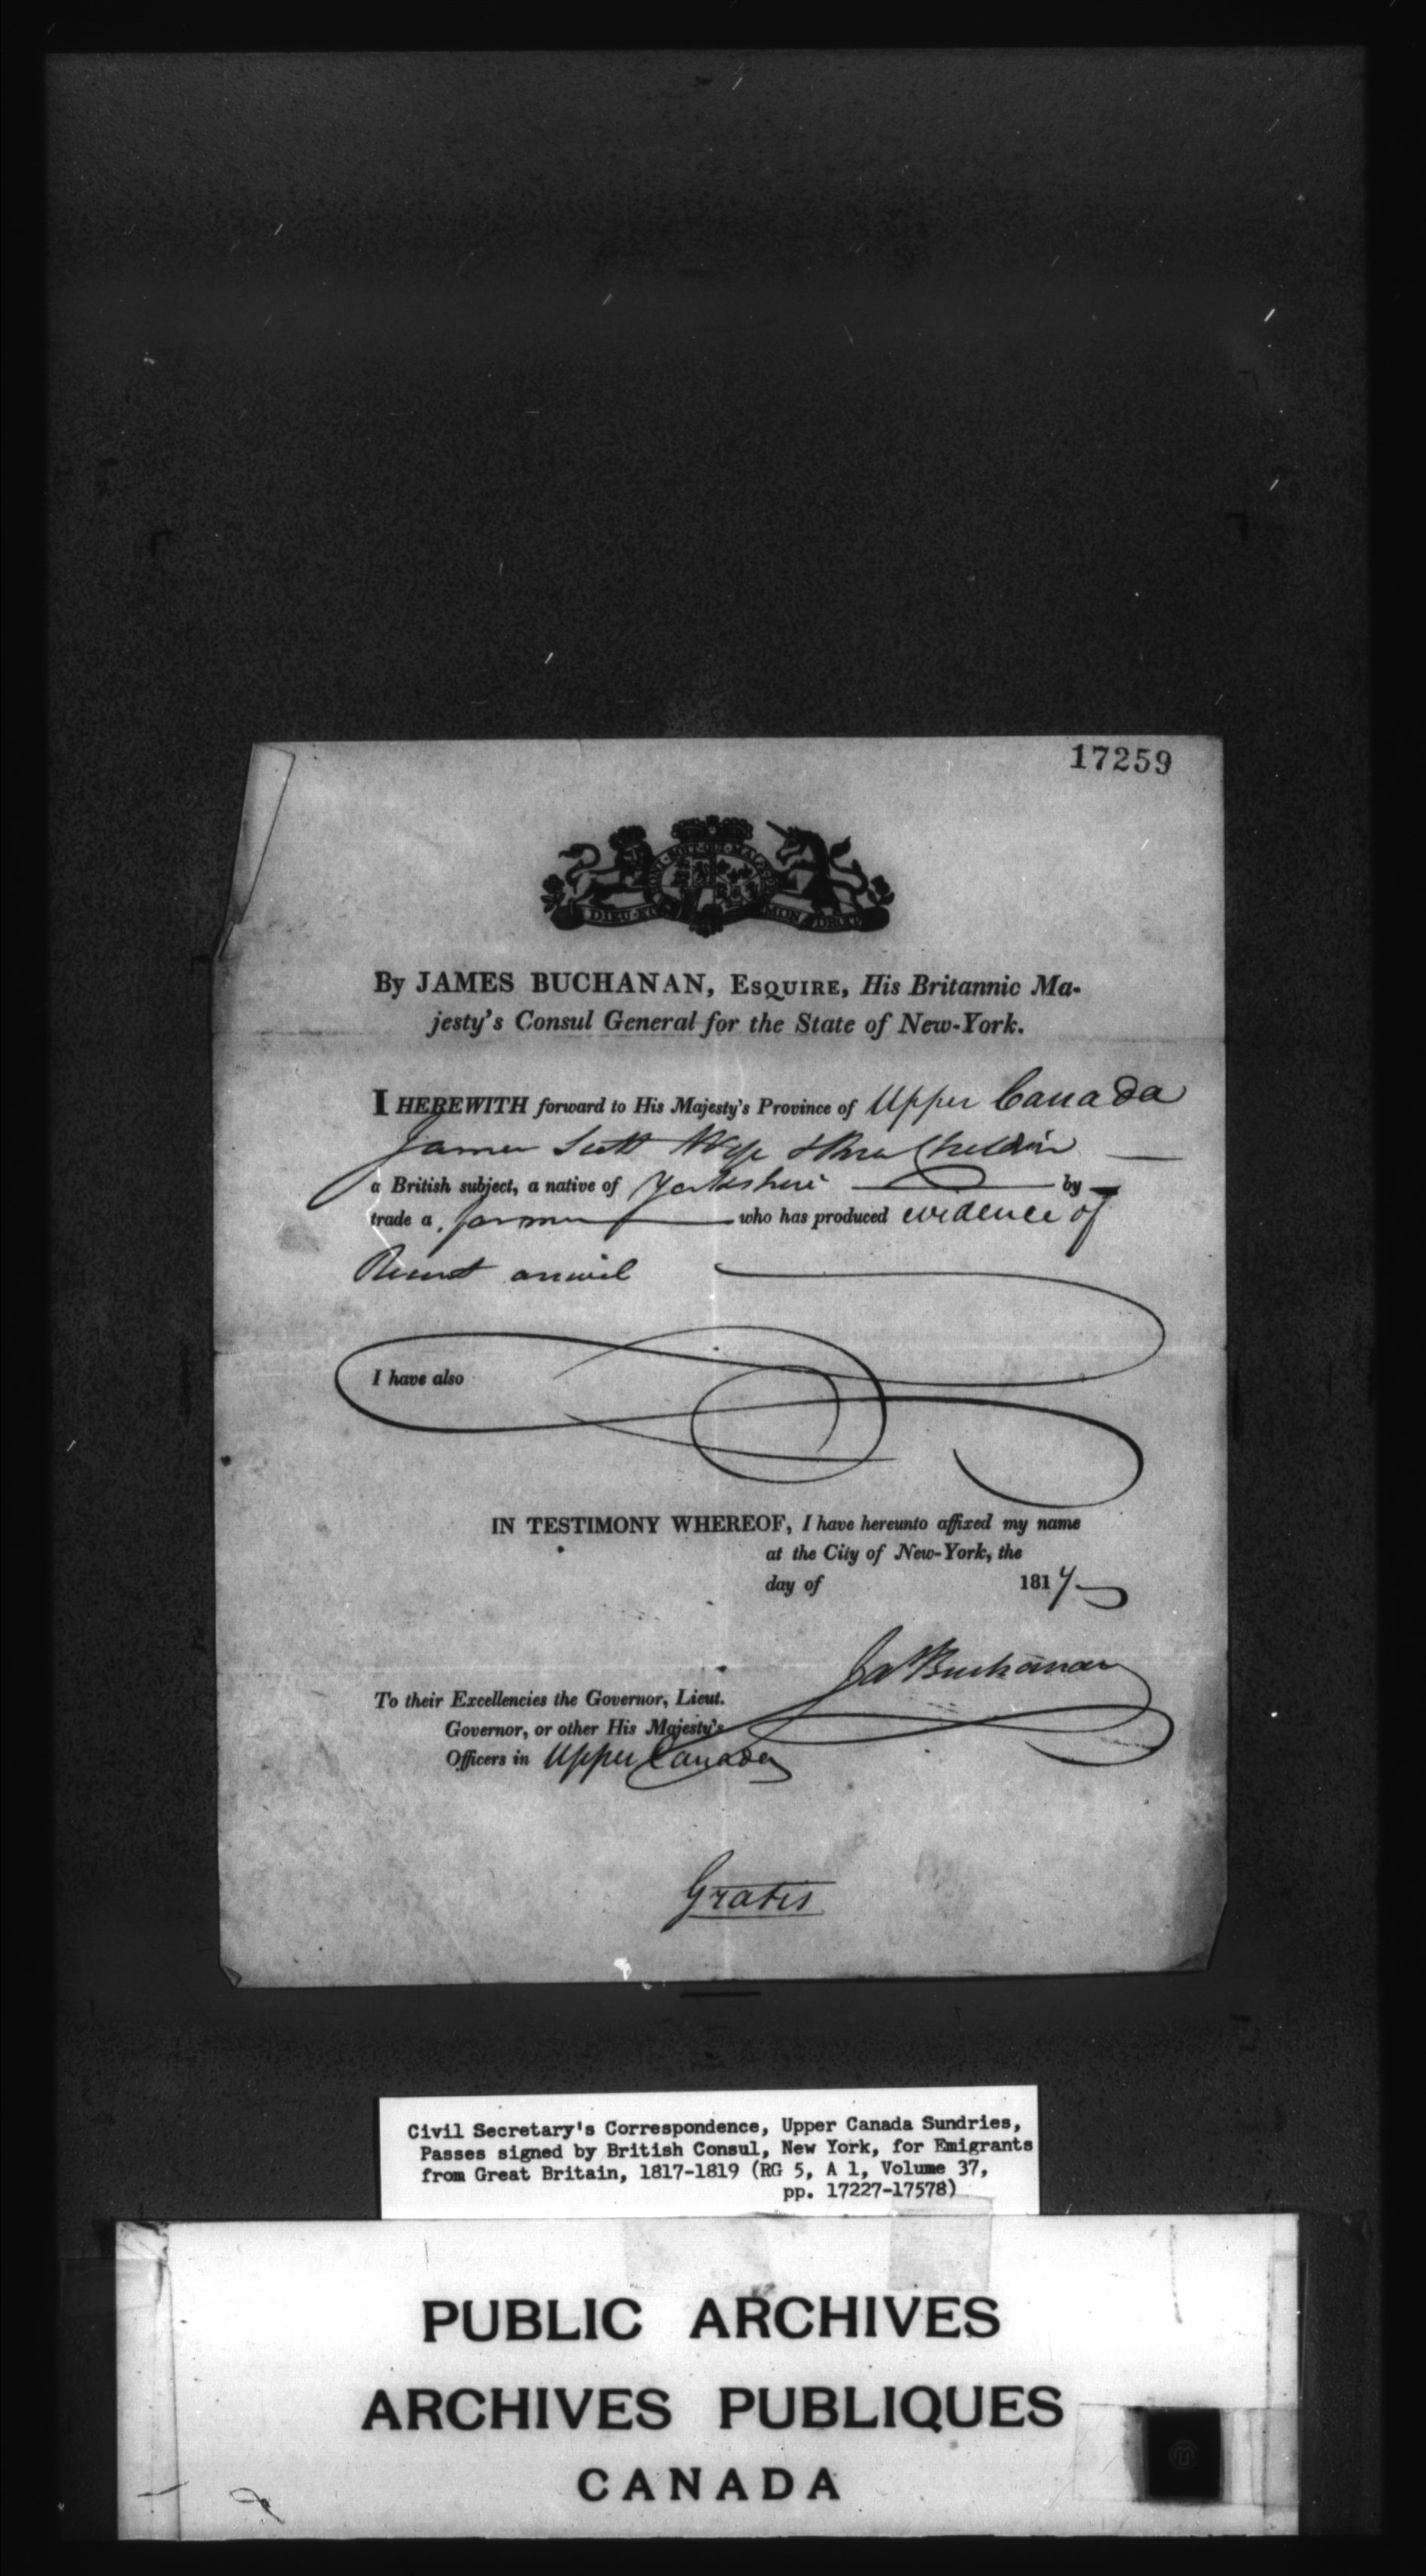 17259
HONI·SOIT·QUI·MAL
DIEU·ET MON DROIT
By JAMES BUCHANAN, ESQUIRE, His Britannic Ma-
jesty's Consul General for the State of New-York.
I HEREWITH forward to His Majesty's Province of Upper Canada
James Scott Wife & three Children
a British subject, a native of Yorkshire by
trade a farmer who has produced evidence of
Recent arrival
I have also
IN TESTIMONY WHEREOF, I have hereunto affixed my name
at the City of New-York, the
day of 1817
Jas Buchanan
To their Excellencies the Governor, Lieut.
Governor, or other His Majesty's
Officers in Upper Canada
Gratis
Civil Secretary's Correspondence, Upper Canada Sundries,
Passes signed by British Consul, New York, for Emigrants
from Great Britain, 1817-1819 (RG 5, A 1, Volume 37,
pp. 17227-17578)
PUBLIC ARCHIVES
ARCHIVES PUBLIQUES
CANADA